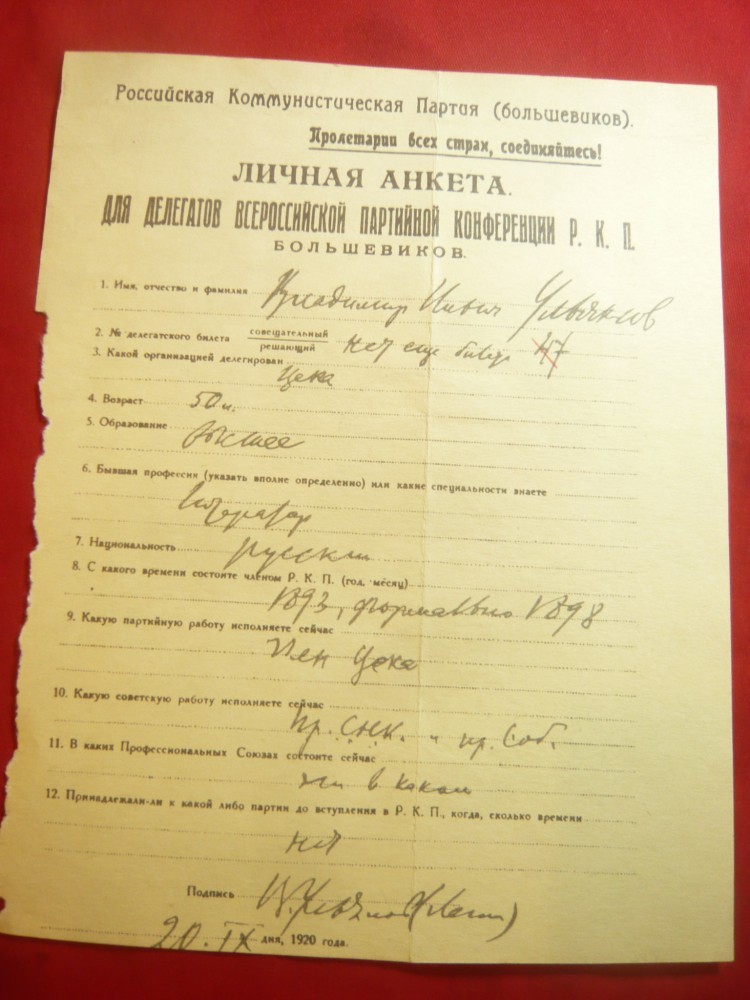 Российская Коммунистическая Партия (большевиков).
Пролетарии всех стран, соединяйтесь!
ЛИЧНАЯ АНКЕТА.
ДЛЯ ДЕЛЕГАТОВ ВСЕРОССИЙСКОЙ ПАРТИЙНОЙ КОНФЕРЕНЦИИ Р. К. П.
БОЛЬШЕВИКОВ.
1. Имя, отчество и фамилия Владимир Ильич Ульянов
2. № делегатского билета совещательный
решающий нет еще билета 47
3. Какой организацией делегирован
Цека
4. Возраст 50 л.
5. Образование высшее
6. Бывшая профессия (указать вполне определенно) или какие специальности знаете
литератор
7. Национальность русский
8. С какого времени состоите членом Р. К. П. (год, месяц)
1893, формально 1898
9. Какую партийную работу исполняете сейчас
Член Цека
10. Какую советскую работу исполняете сейчас
пр. СНК. и пр. Соб.
11. В каких Профессиональных Союзах состоите сейчас
ни в каком
12. Принадлежали-ли к какой либо партии до вступления в Р. К. П., когда, сколько времени
нет
Подпись В. Ульянов (Ленин)
20. IX дня, 1920 года.